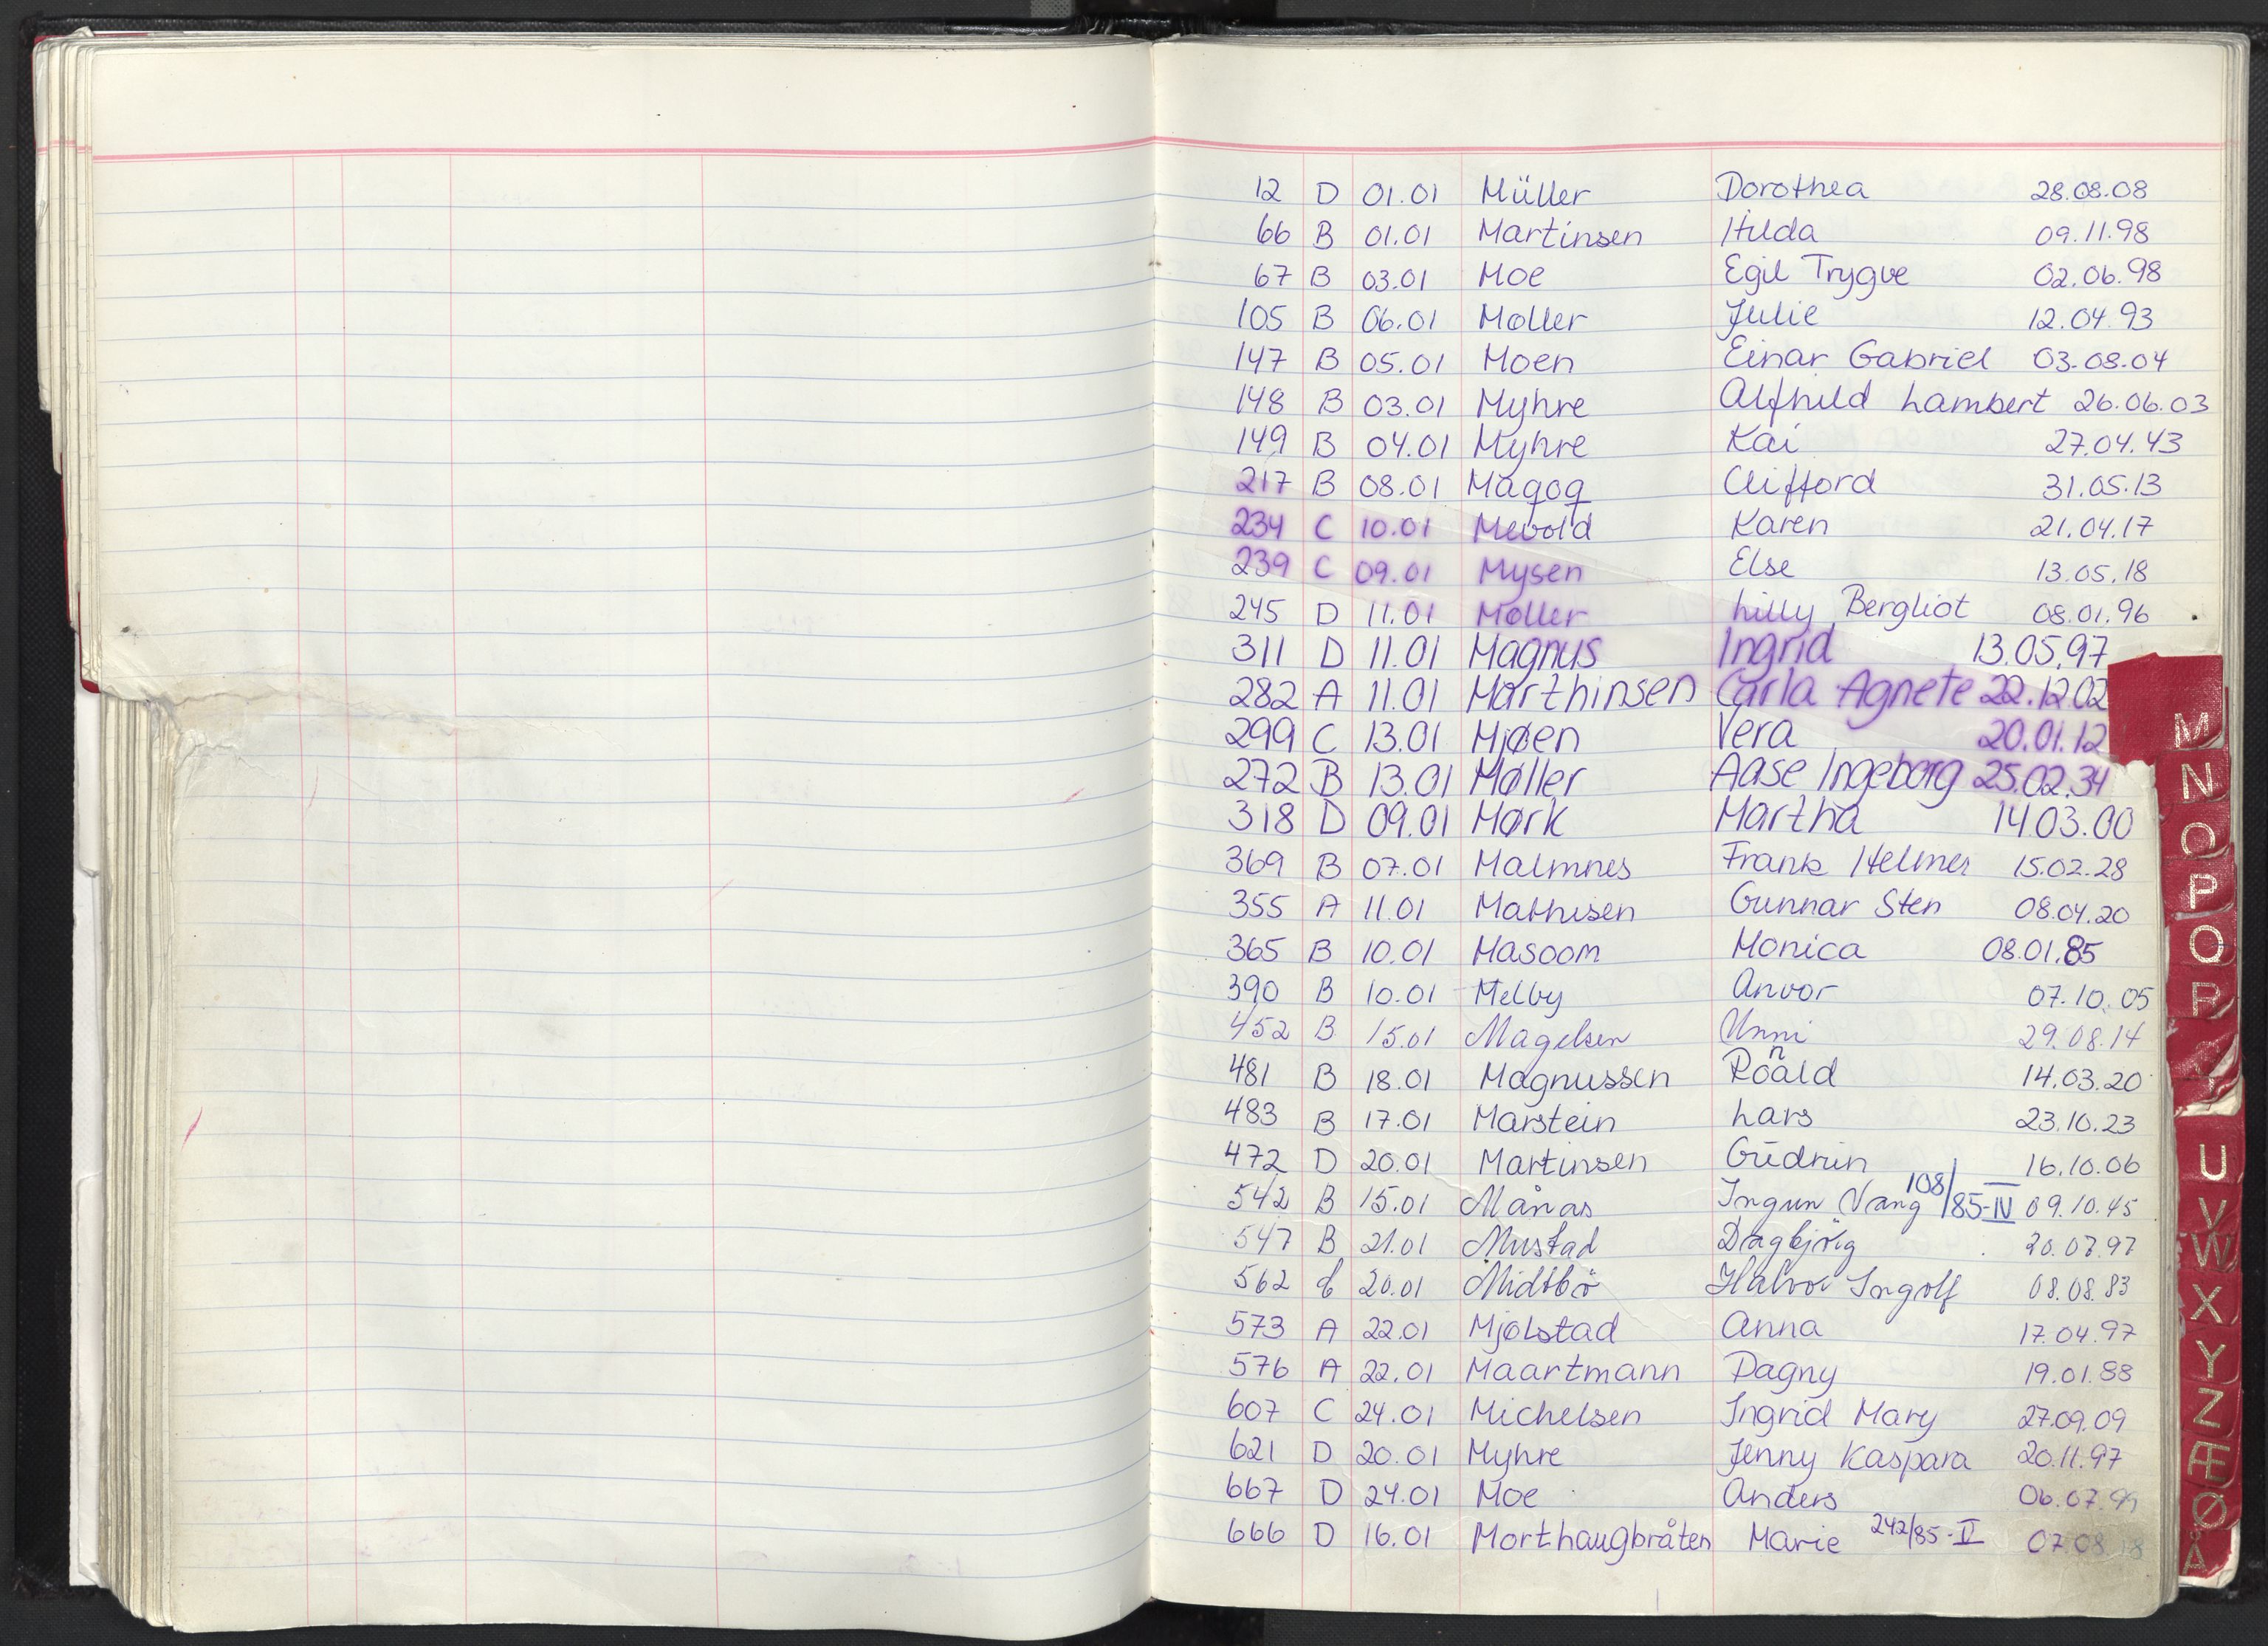 12 D 01.01 Müller Dorothea 28.08.08
66 B 01.01 Martinsen Hilda 09.11.98
67 B 03.01 Moe Egil Trygve 02.06.98
105 B 06.01 Møller Julie 12.04.93
147 B 05.01 Moen Einar Gabriel 03.08.04
148 B 03.01 Myhre Alfhild Lambert 26.06.03
149 B 04.01 Myhre Kai 27.04.43
217 B 08.01 Magog Clifford 31.05.13
234 C 10.01 Mevold Karen 21.04.17
239 C 09.01 Mysen Else 13.05.18
245 D 11.01 Møller Lilly Bergliot 08.01.96
311 D 11.01 Magnus Ingrid 13.05.97
282 A 11.01 Marthinsen Carla Agnete 22.12.02
299 C 13.01 Mjøen Vera 20.01.12
272 B 13.01 Møller Aase Ingeborg 25.02.34
318 D 09.01 Mørk Martha 14.03.00
369 B 07.01 Malmnes Frank Helmer 15.02.28
355 A 11.01 Mathisen Gunnar Sten 08.04.20
365 B 10.01 Masoom Monica 08.01.85
390 B 10.01 Melby Anvor 07.10.05
452 B 15.01 Magelsen Unni 29.08.14
481 B 18.01 Magnussen Roald n 14.03.20
483 B 17.01 Marstein Lars 23.10.23
472 D 20.01 Martinsen Gudrun 16.10.06
542 B 15.01 Månas Ingun Vang 108/85-IV 09.10.45
547 B 21.01 Mustad Dagbjörg 20.07.97
562 C 20.01 Midtbö Halvor Ingolf 08.08.83
573 A 22.01 Mjølstad Anna 17.04.97
576 A 22.01 Maartmann Dagny 19.01.88
607 C 24.01 Michelsen Ingrid Mary 27.09.09
621 D 20.01 Myhre Jenny Kaspara 20.11.97
667 D 24.01 Moe Anders
666 D 16.01 Morthaugbråten Marie 242/85-II
M
N
O
P
Q
R
U
V
W
X
Y
Z
Æ
Ø
Å